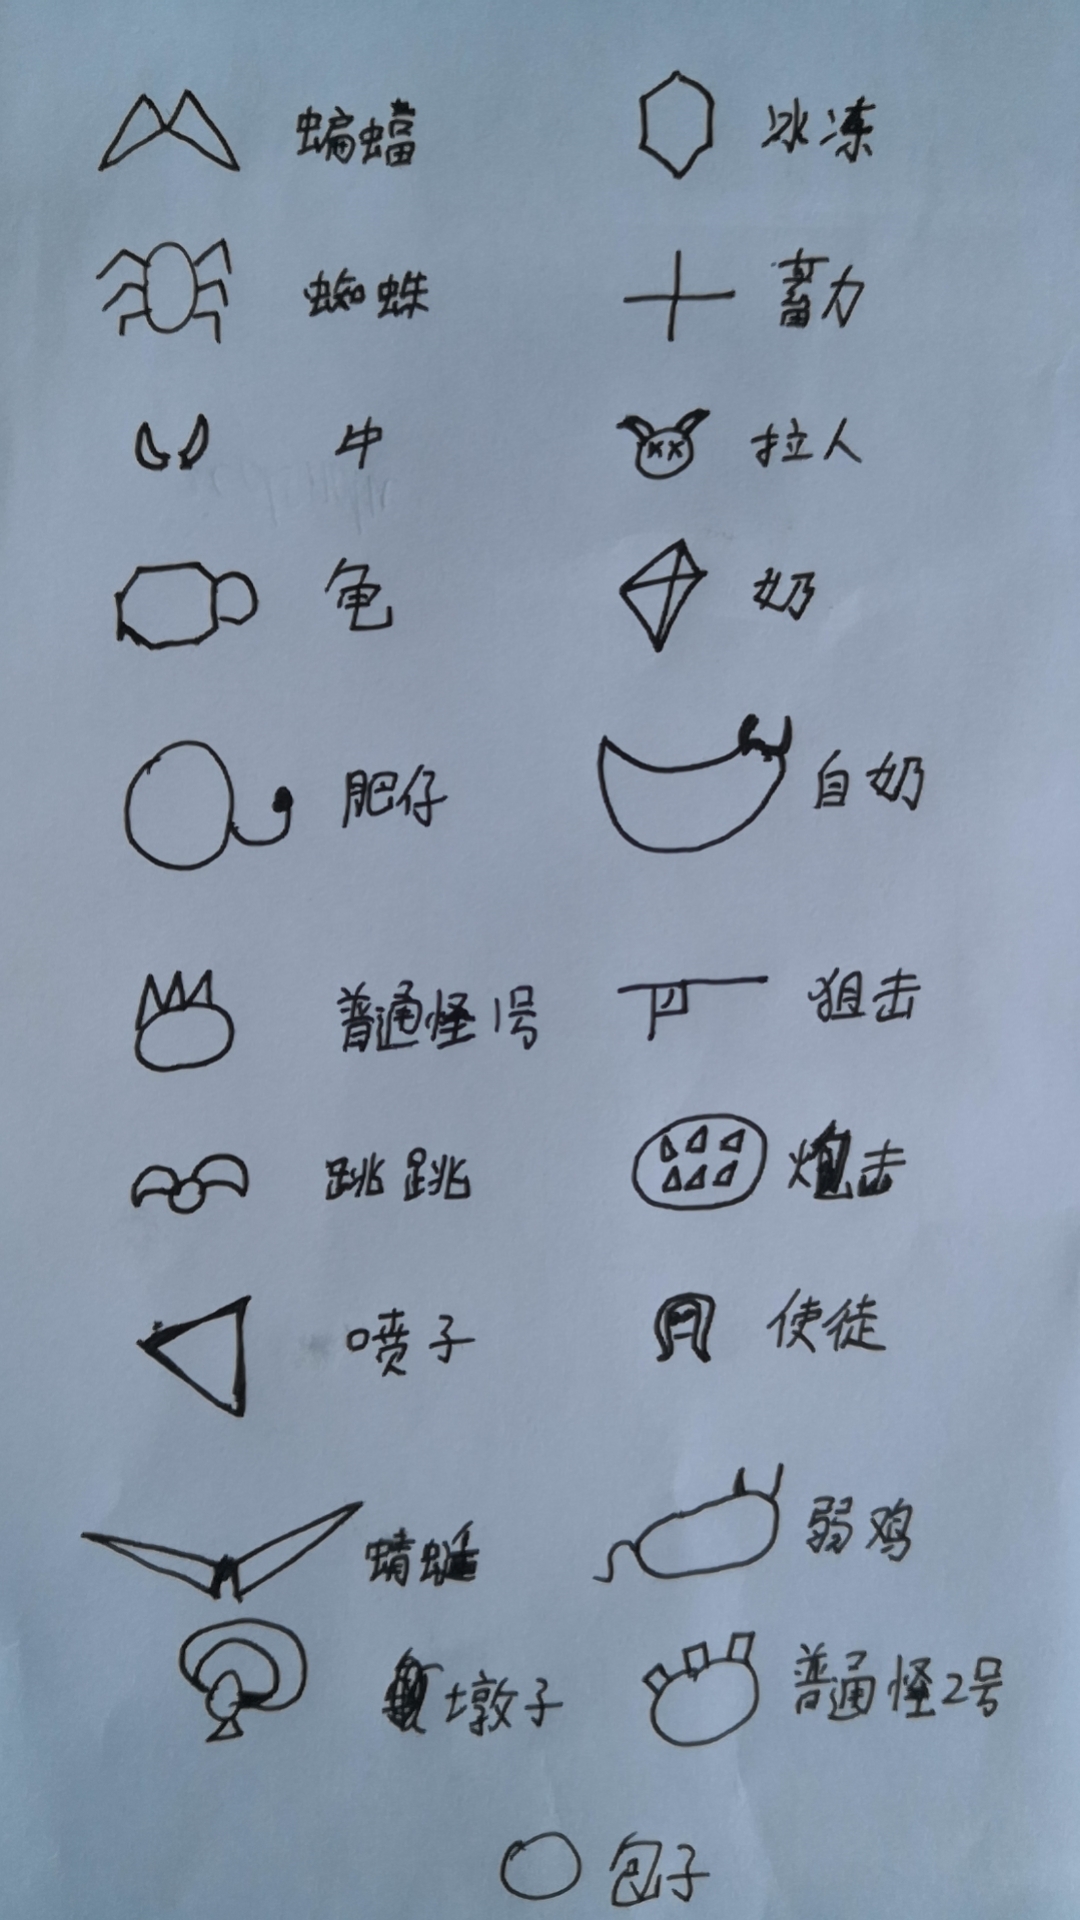 蝙蝠 冰冻
蜘蛛 蓄力
牛 拉人
龟 奶
肥仔 自奶
普通怪1号 狙击
跳跳 炮击
喷子 使徒
蜻蜓 弱鸡
墩子 普通怪2号
包子